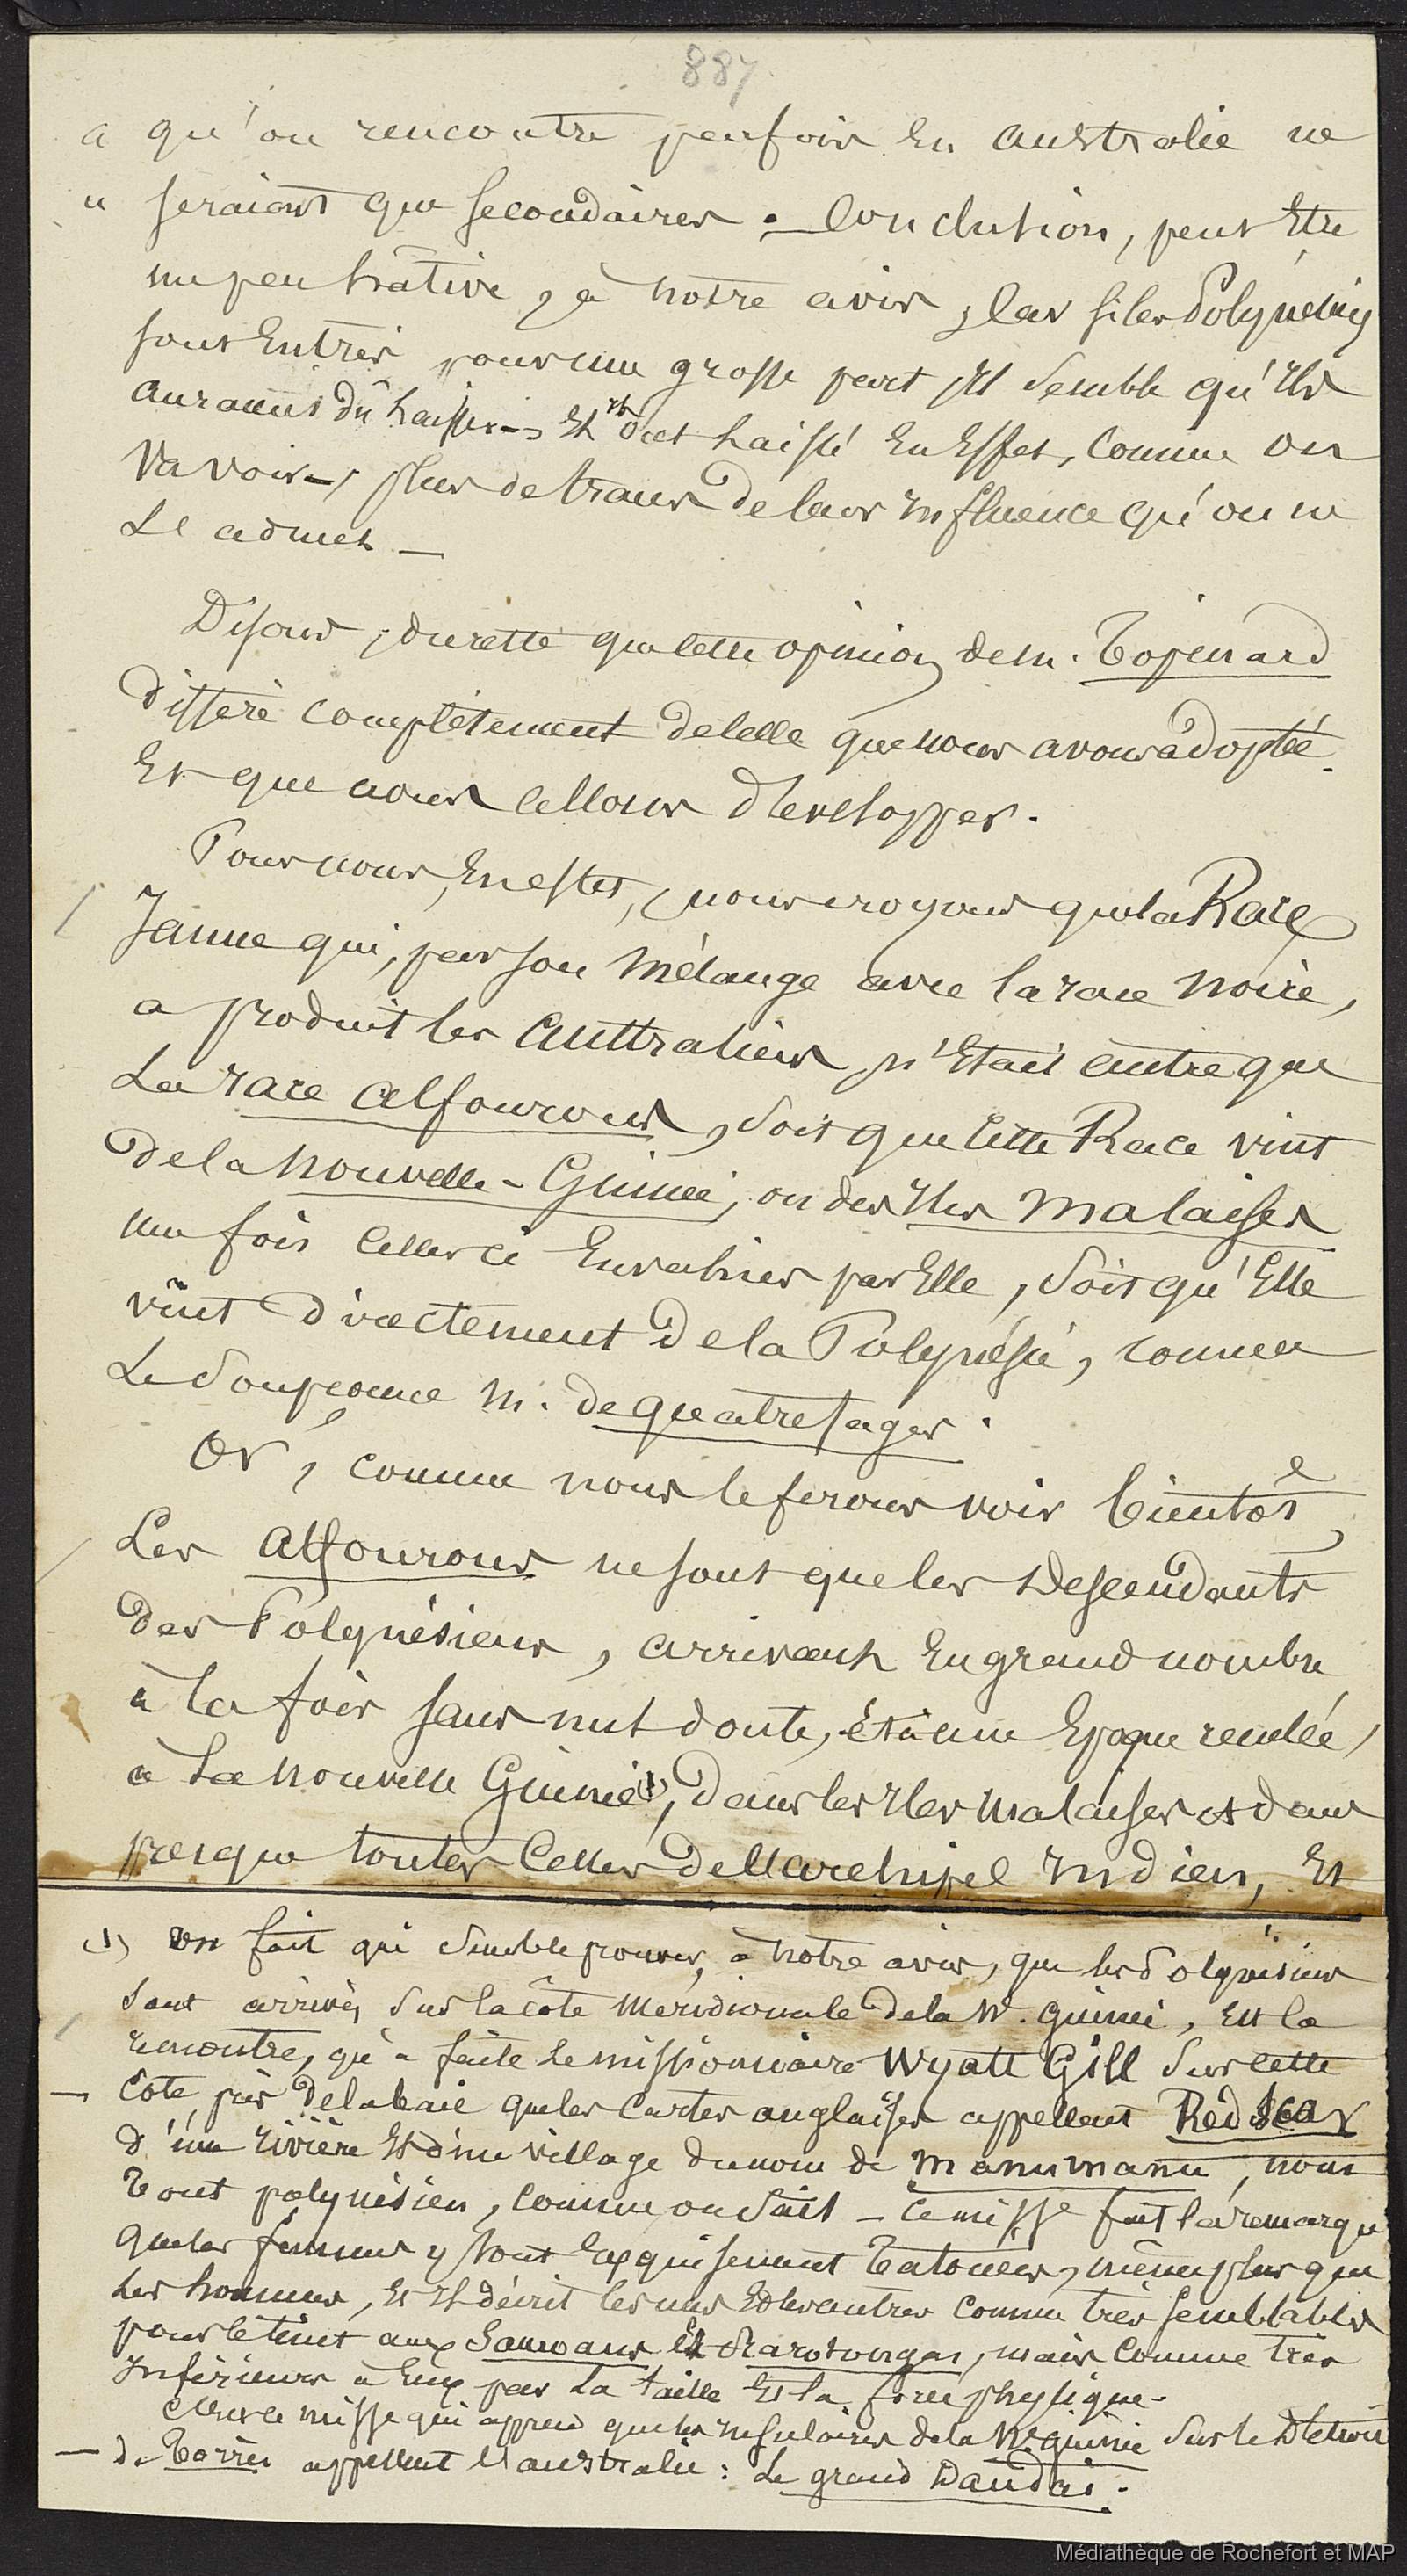 887
« qu'on rencontre parfois en Australie ne
« seraient que secondaires. – Conclusion, peut être
un peu hâtive, à notre avis, car si les Polynésiens
sont entrés pour une grosse part il semble qu'ils
auraient dû laisser – et ils ont laissé en effet, comme on
va voir –, plus de traces de leur influence qu'on ne
le admet –
Disons, du reste que cette opinion de M. Topinard
diffère complètement de celle que nous avons adoptée
et que nous allons développer.
Pour nous, en effet, nous croyons que la Race
Jaune qui, par son mélange avec la race noire,
a produit les Australiens, n'était autre que
la race alfourous, soit que cette Race vint
de la Nouvelle-Guinée, ou des Iles Malaises
une fois celles ci envahies par Elle, soit qu'Elle
vint directement de la Polynésie, comme
le soupçonne M. de Quatrefages.
Or, comme nous le ferons voir bientôt,
Les Alfourous ne sont que les Descendants
des Polynésiens, arrivant en grand nombre
à la fois sans nul doute, et à une Epoque reculée,
à La Nouvelle Guinée (1), dans les Iles Malaises et dans
presque toutes Celles de l'archipel Indien, Et
(1) Un fait qui semble prouver, à notre avis, que les Polynésiens
sont arrivés sur la côte Méridionale de la N. Guinée, est la
rencontre, qu'a faite le missionnaire Wyatt Gill sur cette
Cote, près de la baie que les Cartes anglaises appellent Redscar
d'une rivière et d'un village du nom de Manumanu, nom
tout polynésien, comme on sait – Ce misse fait la remarque
que les femmes y sont exquisement tatouées, même plus que
les hommes, et il décrit les uns et les autres comme très semblables
pour le teint aux Samoans et Rarotongas, mais comme très
Inférieurs à Eux par la taille et la force physique –
C'est ce misse qui apprend que les insulaires de la N. Guinée sur le Détroit
de Torrès appellent l'australie : Le grand Daudai.
Médiathèque de Rochefort et MAP